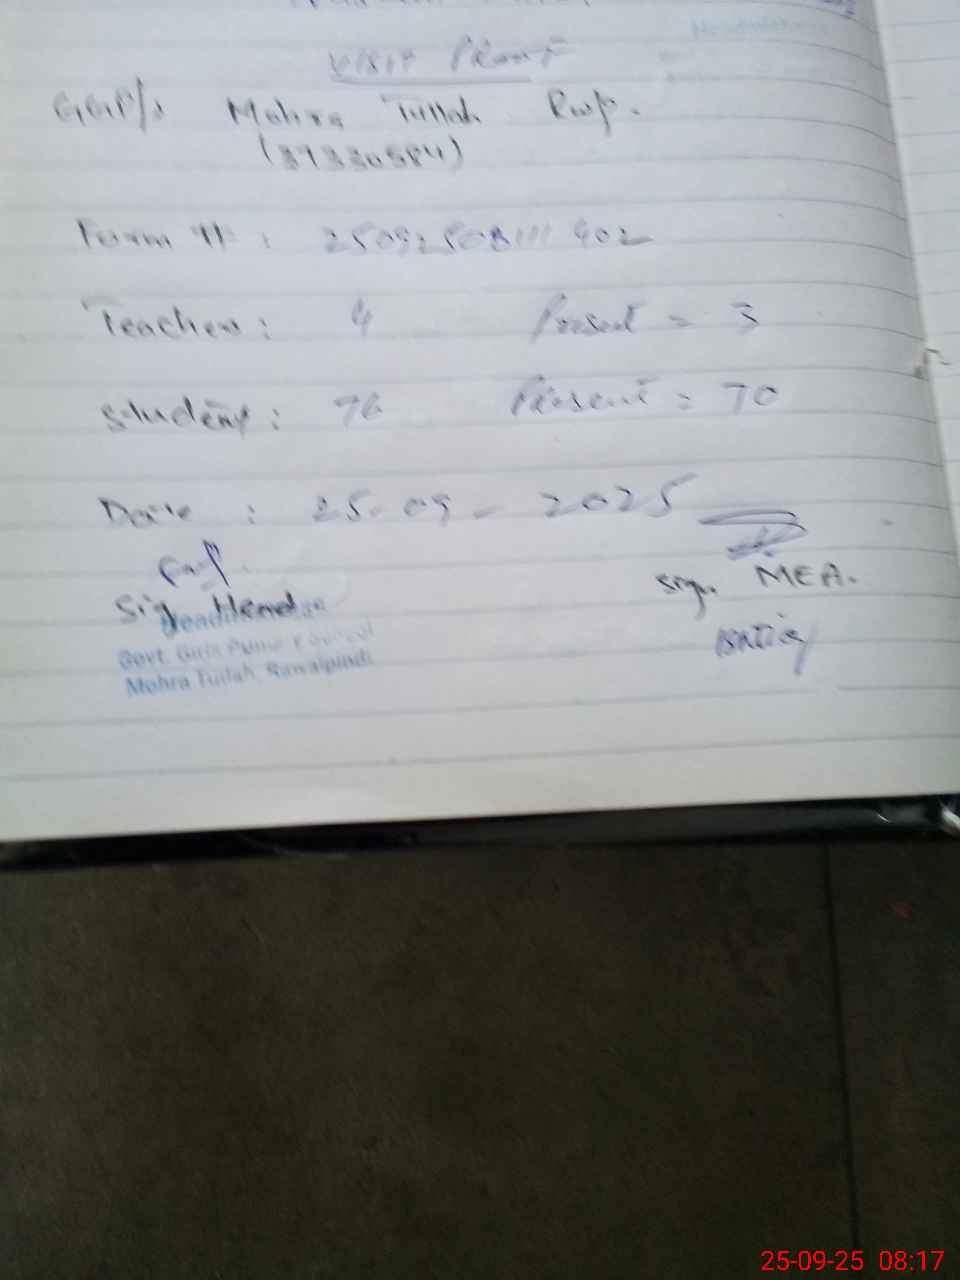 Visit Proof
GGP/S Mohra Tullah Rwp.
(37330584)
Form #: 25092508111402
Teacher: 4 Present = 3
Student: 76 Present = 70
Date: 25-09-2025
Sig. Head
Sig. MEA.
Govt. Girls Primary School
Mohra Tullah, Rawalpindi
25-09-25 08:17